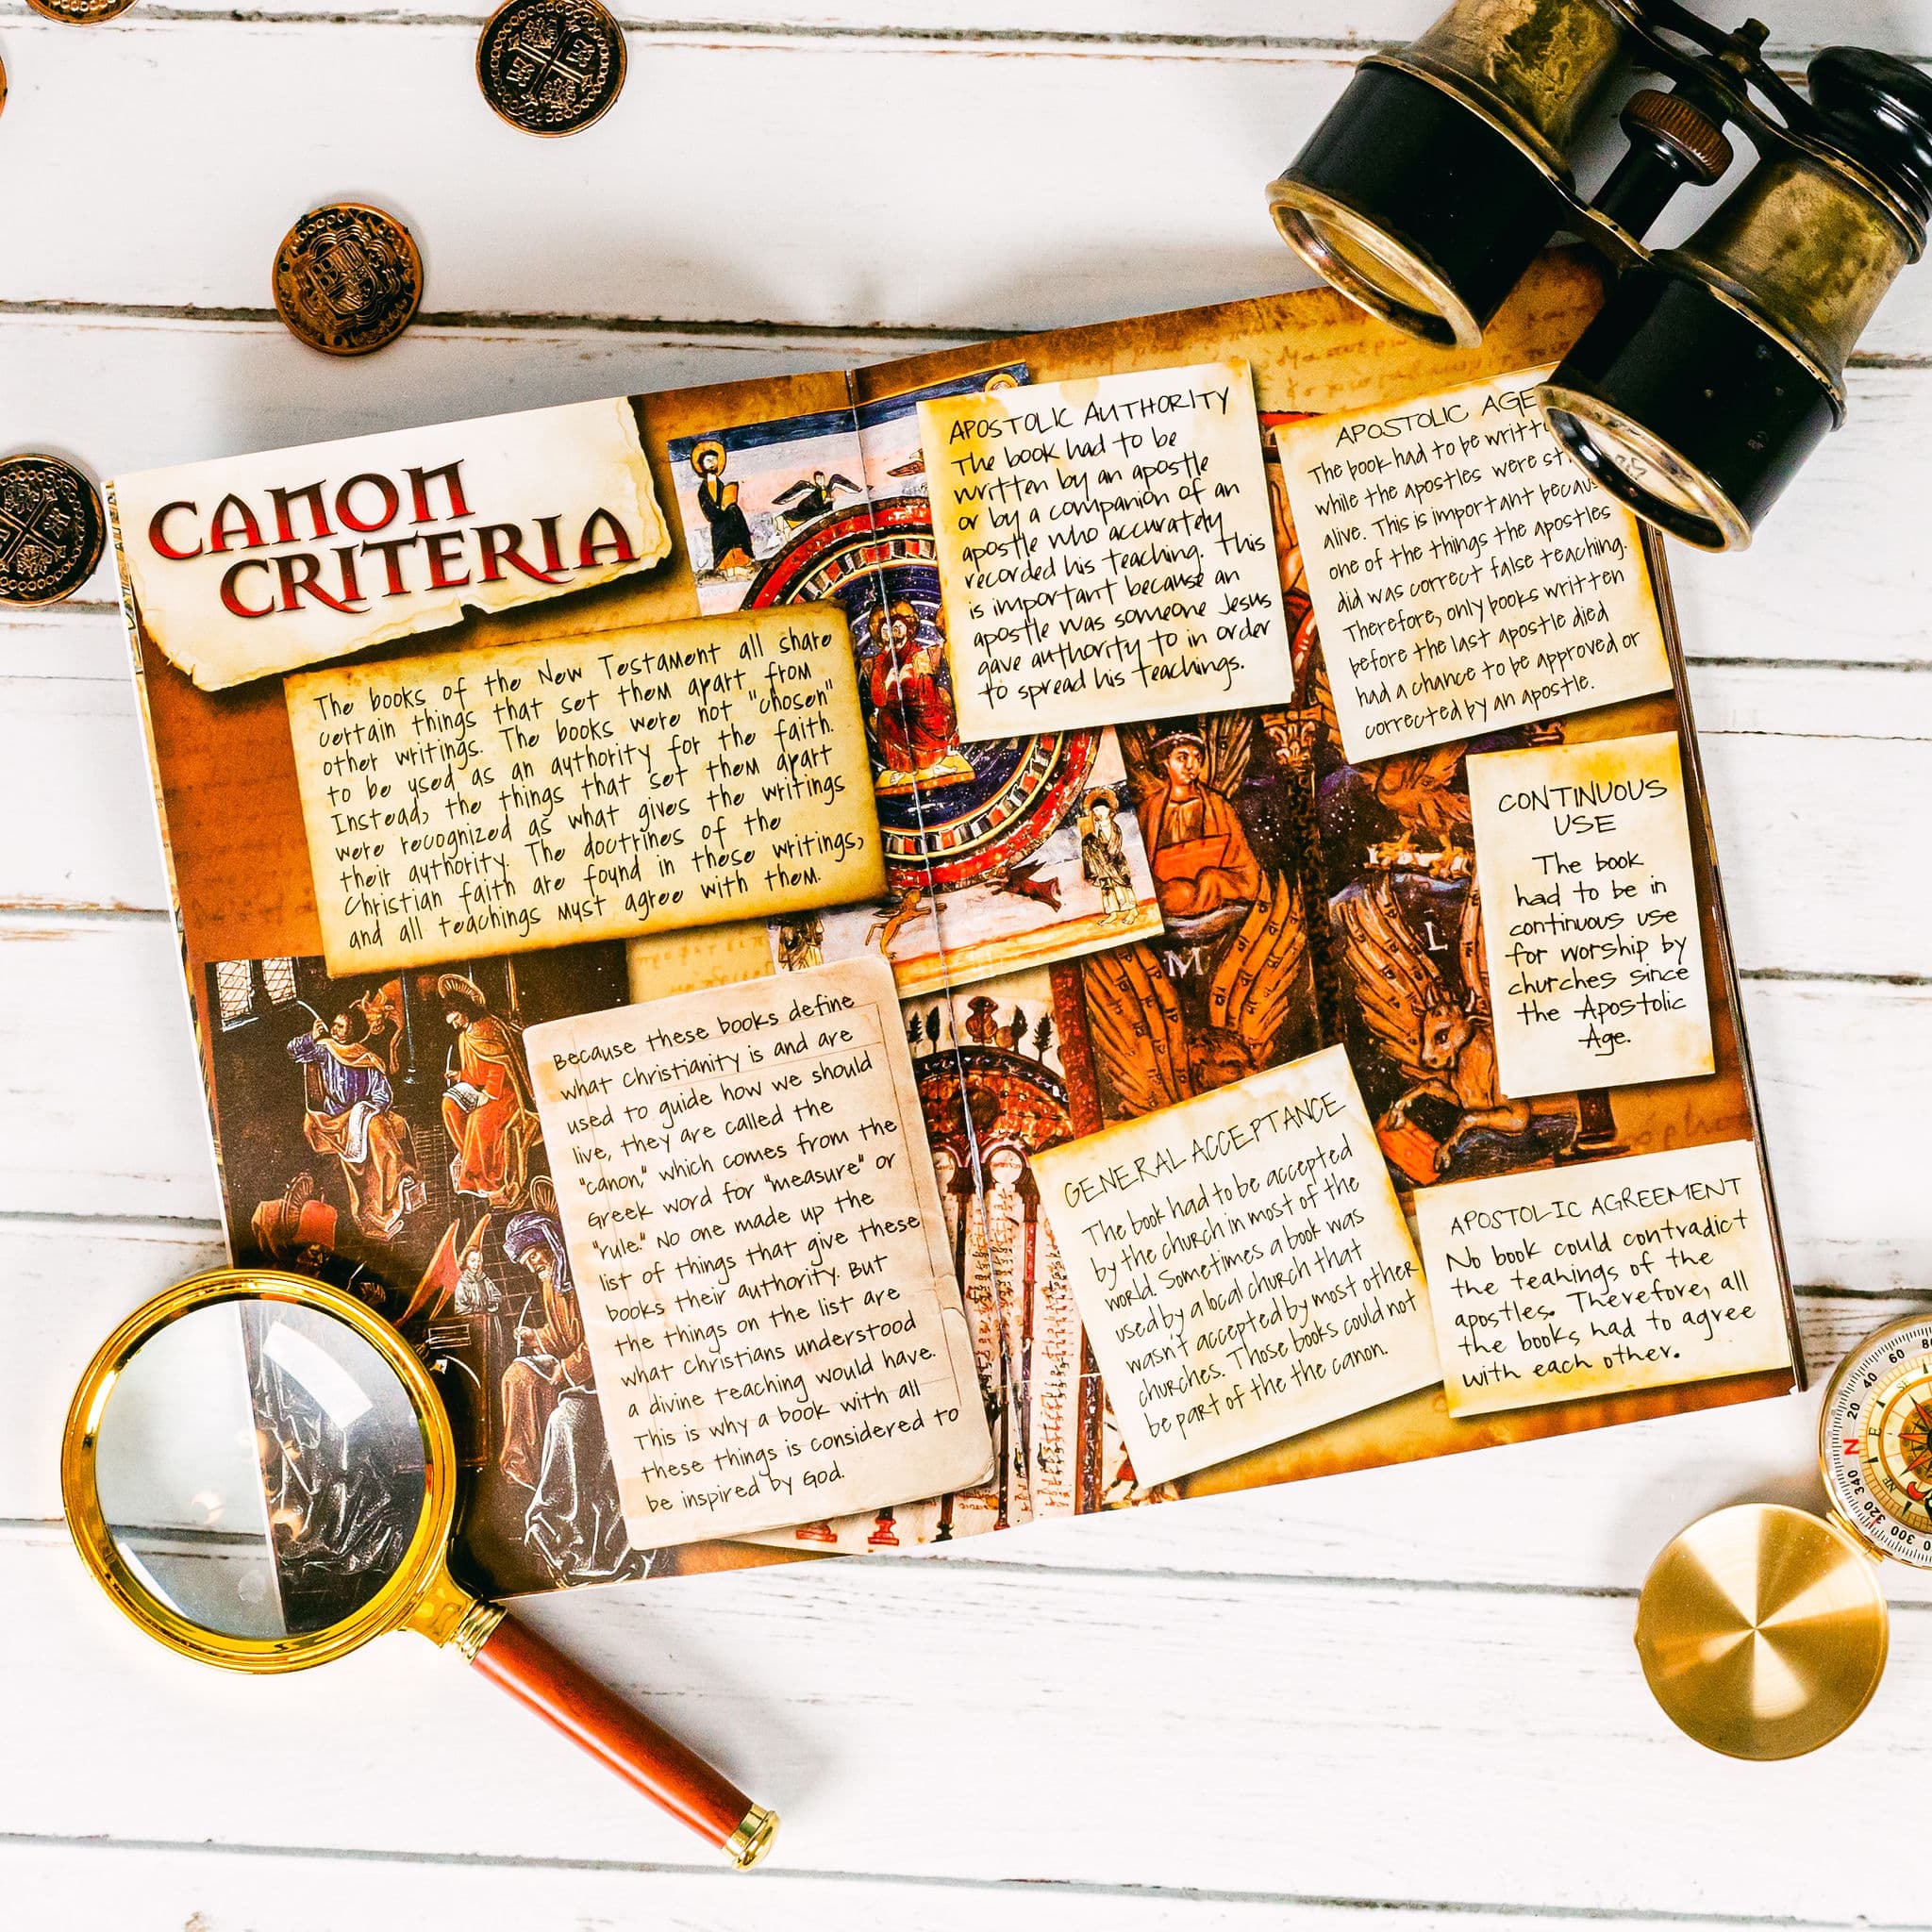 CANON
CRITERIA
The books of the New Testament all share
certain things that set them apart from
other writings. The books were not "chosen"
to be used as an authority for the faith.
Instead, the things that set them apart
were recognized as what gives the writings
their authority. The doctrines of the
Christian faith are found in these writings,
and all teachings must agree with them.
Because these books define
what Christianity is and are
used to guide how we should
live, they are called the
"canon," which comes from the
Greek word for "measure" or
"rule." No one made up the
list of things that give these
books their authority. But
the things on the list are
what Christians understood
a divine teaching would have.
This is why a book with all
these things is considered to
be inspired by God.
APOSTOLIC AUTHORITY
The book had to be
written by an apostle
or by a companion of an
apostle who accurately
recorded his teaching. This
is important because an
apostle was someone Jesus
gave authority to in order
to spread his teachings.
APOSTOLIC AGE
The book had to be
while the apostles were
alive. This is important
one of the things the apostles
did was correct false teaching.
Therefore, only books written
before the last apostle died
had a chance to be approved or
corrected by an apostle.
CONTINUOUS
USE
The book
had to be in
continuous use
for worship by
churches since
the Apostolic
Age.
GENERAL ACCEPTANCE
The book had to be accepted
by the church in most of the
world. Sometimes a book was
used by a local church that
wasn't accepted by most other
churches. Those books could not
be part of the the canon.
APOSTOLIC AGREEMENT
No book could contradict
the teahings of the
apostles. Therefore, all
the books had to agree
with each other.
M
L
N
E
SE
NE
20
40
60
340
320
300